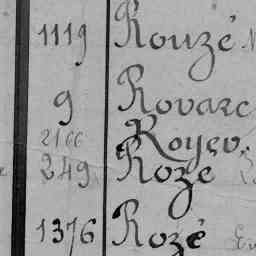 1119 Rouzé
9 Rovarc
2166 Royer
249 Rozé
1376 Rozé